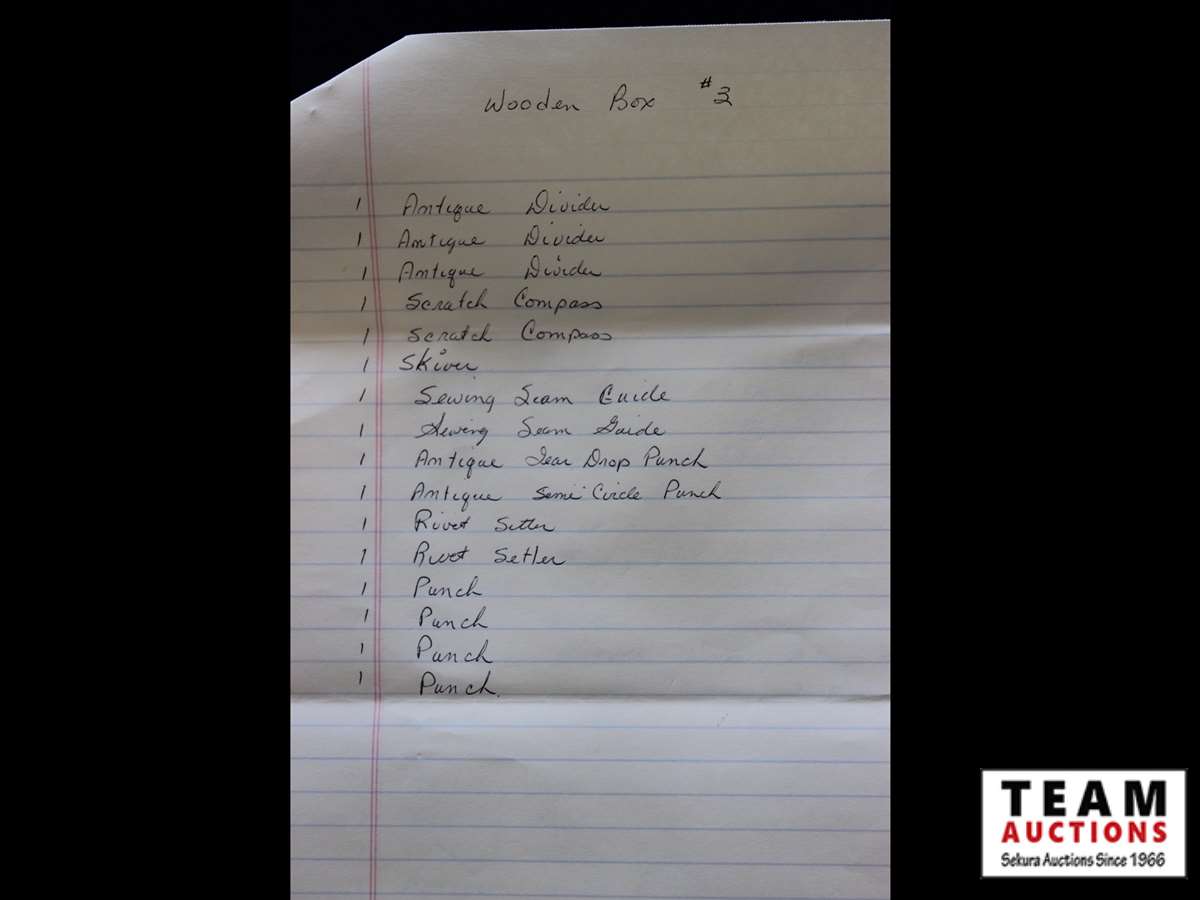 Wooden Box #3
1 Antique Divider
1 Antique Divider
1 Antique Divider
1 Scratch Compass
1 Scratch Compass
1 Skiver
1 Sewing Seam Guide
1 Sewing Seam Guide
1 Antique Tear Drop Punch
1 Antique Semi-Circle Punch
1 Rivet Setter
1 Rivet Setler
1 Punch
1 Punch
1 Punch
1 Punch.
TEAM
AUCTIONS
Sekura Auctions Since 1966